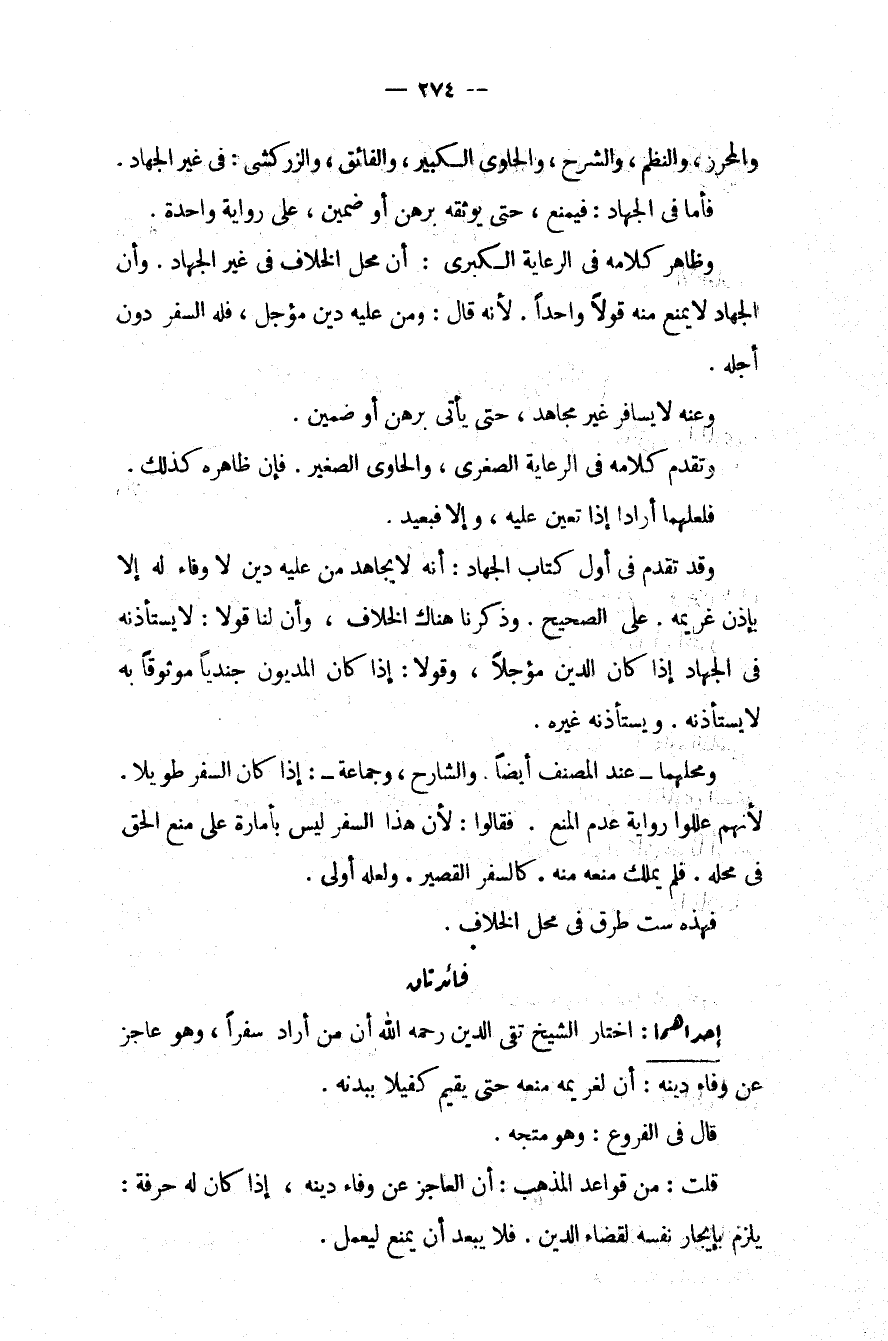 -- ٢٧٤ —
والمحرر ، والنظم ، والشرح ، والحاوى الكبير ، والفائق ، والزركشى : فى غير الجهاد .
فأما فى الجهاد : فيمنع ، حتى يوثقه برهن أو ضمين ، على رواية واحدة .
وظاهر كلامه فى الرعاية الكبرى : أن محل الخلاف فى غير الجهاد . وأن
الجهاد لا يمنع منه قولاً واحداً . لأنه قال : ومن عليه دين مؤجل ، فله السفر دون
أجله .
وعنه لا يسافر غير مجاهد ، حتى يأتى برهن أو ضمين .
وتقدم كلامه فى الرعاية الصغرى ، والحاوى الصغير . فإن ظاهره كذلك .
فلعلهما أرادا إذا تعين عليه ، و إلا فبعيد .
وقد تقدم فى أول كتاب الجهاد : أنه لا يجاهد من عليه دين لا وفاء له إلا
بإذن غريمه . على الصحيح . وذكرنا هناك الخلاف ، وأن لنا قولا : لا يستأذنه
فى الجهاد إذا كان الدين مؤجلاً ، وقولا : إذا كان المديون جندياً موثوقاً به
لا يستأذنه . و يستأذنه غيره .
ومحلهما ـ عند المصنف أيضاً . والشارح ، وجماعة ـ : إذا كان السفر طويلا .
لأنهم عللوا رواية عدم المنع . فقالوا : لأن هذا السفر ليس بأمارة على منع الحق
فى محله . فلم يملك منعه منه . كالسفر القصير . ولعله أولى .
فهذه ست طرق فى محل الخلاف .
فائدتان
إحداهما : اختار الشيخ تقى الدين رحمه الله أن من أراد سفراً ، وهو عاجز
عن وفاء دينه : أن لغريمه منعه حتى يقيم كفيلا ببدنه .
قال فى الفروع : وهو متجه .
قلت : من قواعد المذهب : أن العاجز عن وفاء دينه ، إذا كان له حرفة :
يلزم بإيجار نفسه لقضاء الدين . فلا يبعد أن يمنع ليعمل .